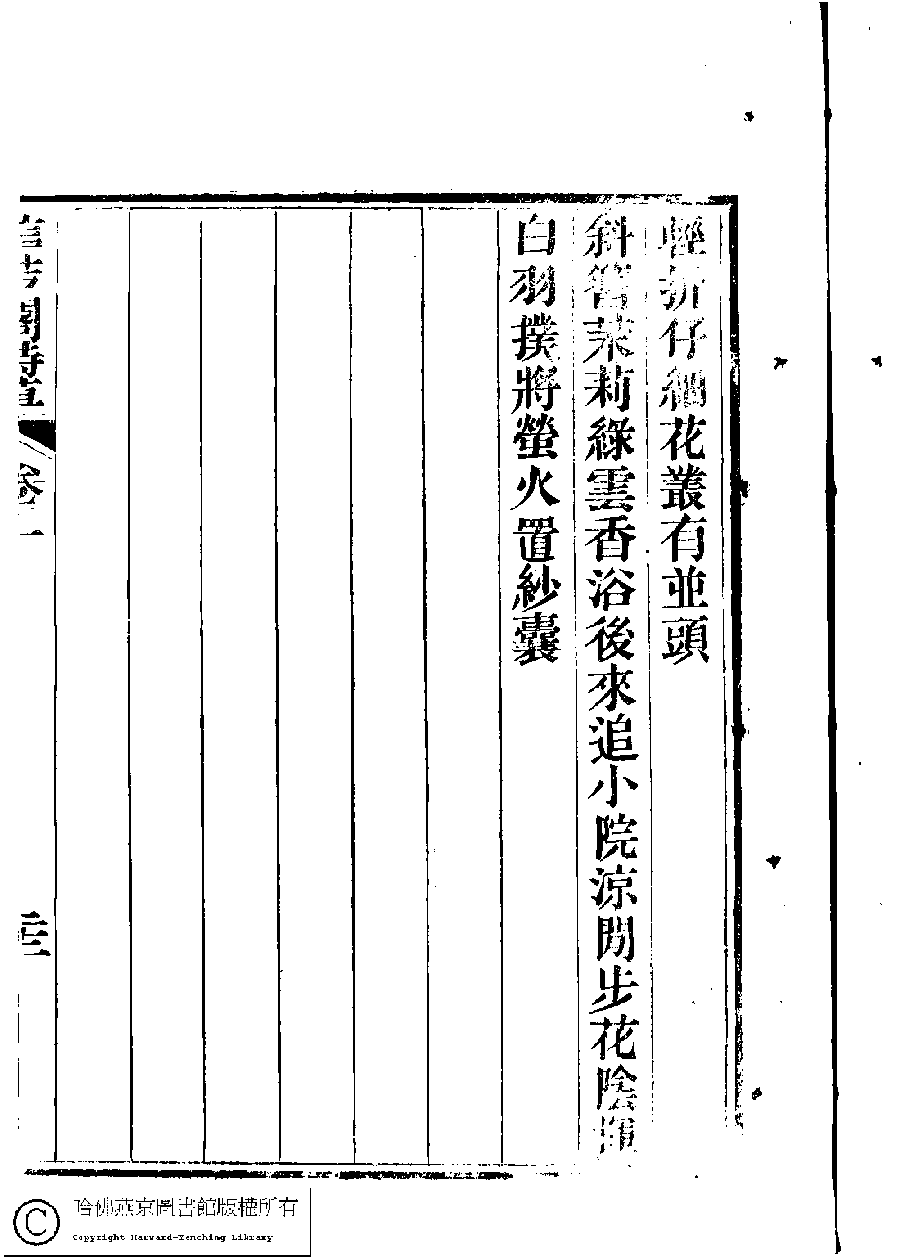 輕折仔細花叢有並頭
斜簪茉莉綠雲香浴後來追小院涼閒步花陰揮
白羽撲將螢火置紗囊
閣詩草
卷一
二十三
哈佛燕京圖書館版權所有
Copyright Harvard-Yenching Library